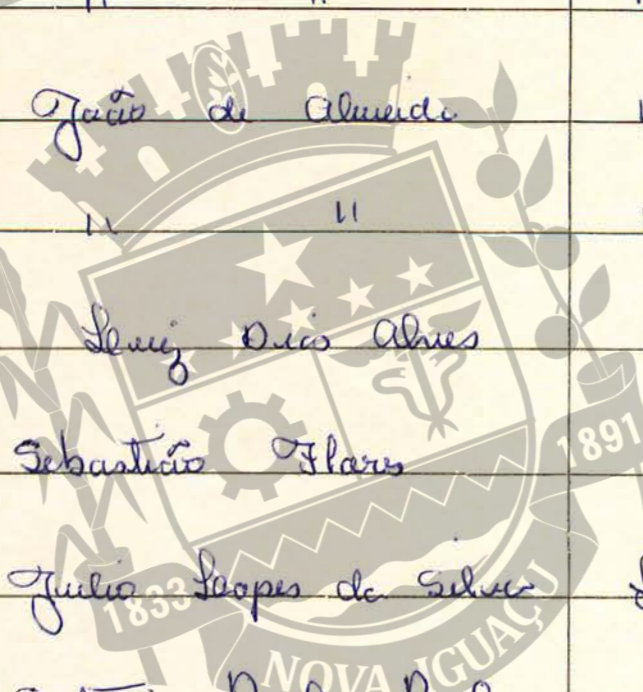 " "
João de Almeida
" "
Luiz Dias Alves
Sebastião Flores
1891
Julio Lopes da Silva
1833
NOVA IGUAÇU